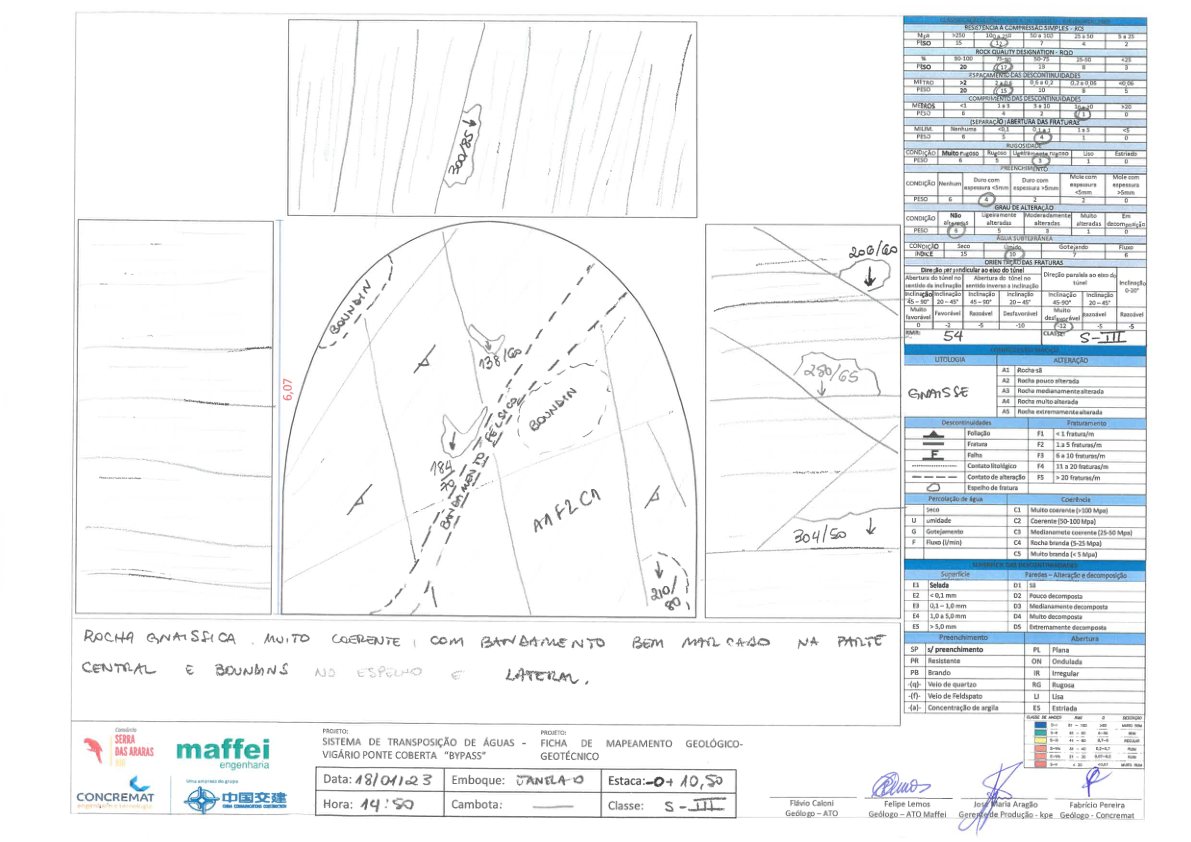 RESISTENCIA A COMPRESSÃO SIMPLES - RCS
Mpa >250 100 a 250 50 a 100 25 a 50 5 a 25
PESO 15 12 7 4 2
ROCK QUALITY DESIGNATION - RQD
% 90-100 75-90 50-75 25-50 <25
PESO 20 17 13 8 3
ESPAÇAMENTO DAS DESCONTINUIDADES
METRO >2 2 a 0,6 0,6 a 0,2 0,2 a 0,06 <0,06
PESO 20 15 10 8 5
COMPRIMENTO DAS DESCONTINUIDADES
METROS <1 1 a 3 3 a 10 10 a 20 >20
PESO 6 4 2 1 0
(SEPARAÇÃO) ABERTURA DAS FRATURAS
MILIM. Nenhuma <0,1 0,1 a 1 1 a 5 <5
PESO 6 5 4 1 0
RUGOSIDADE
CONDIÇÃO Muito rugoso Rugoso Ligeiramente rugoso Liso Estriado
PESO 6 5 3 1 0
PREENCHIMENTO
CONDIÇÃO Nenhum Duro com espessura <5mm Duro com espessura >5mm Mole com espessura <5mm Mole com espessura >5mm
PESO 6 4 2 2 0
GRAU DE ALTERAÇÃO
CONDIÇÃO Não alteradas Ligeiramente alteradas Moderadamente alteradas Muito alteradas Em decomposição
PESO 6 5 3 1 0
ÁGUA SUBTERRÂNEA
CONDIÇÃO Seco Úmido Gotejando Fluxo
ÍNDICE 15 10 7 6
ORIENTAÇÃO DAS FRATURAS
Direção perpendicular ao eixo do túnel
Direção paralela ao eixo do túnel
Inclinação 0-20°
Abertura do túnel no sentido da inclinação
Abertura do túnel no sentido inverso a inclinação
Inclinação 45 – 90° Inclinação 20 – 45° Inclinação 45 – 90° Inclinação 20 – 45° Inclinação 45-90° Inclinação 20 – 45°
Muito favorável Favorável Razoável Desfavorável Muito desfavorável Razoável Razoável
0 -2 -5 -10 -12 -5 -5
RMR: 54 CLASSE: S-III
LITOLOGIA ALTERAÇÃO
GNAISSE
A1 Rocha sã
A2 Rocha pouco alterada
A3 Rocha medianamente alterada
A4 Rocha muito alterada
A5 Rocha extremamente alterada
Descontinuidades Fraturamento
Foliação F1 < 1 fratura/m
Fratura F2 1 a 5 fraturas/m
F Falha F3 6 a 10 fraturas/m
Contato litológico F4 11 a 20 fraturas/m
Contato de alteração F5 > 20 fraturas/m
Espelho de fratura
Percolação de água Coerência
Seco C1 Muito coerente (>100 Mpa)
U umidade C2 Coerente (50-100 Mpa)
G Gotejamento C3 Medianamente coerente (25-50 Mpa)
F Fluxo (l/min) C4 Rocha branda (5-25 Mpa)
C5 Muito branda (< 5 Mpa)
Superfície Paredes – Alteração e decomposição
E1 Selada D1 Sã
E2 < 0,1 mm D2 Pouco decomposta
E3 0,1 – 1,0 mm D3 Medianamente decomposta
E4 1,0 a 5,0 mm D4 Muito decomposta
E5 > 5,0 mm D5 Extremamente decomposta
Preenchimento Abertura
SP s/ preenchimento PL Plana
PR Resistente ON Ondulada
PB Brando IR Irregular
-(q)- Veio de quartzo RG Rugosa
-(f)- Veio de Feldspato LI Lisa
-(a)- Concentração de argila ES Estriada
300/85
6,07
BOUNDIN
138/60
BOUNDIN
BANDAMENTO FÉLSICO
184/70
A1F2C1
210/80
206/60
280/65
304/50
ROCHA GNAISSICA, MUITO COERENTE, COM BANDAMENTO BEM MARCADO NA PARTE
CENTRAL E BOUNDINS NO ESPELHO E LATERAL.
Consórcio
SERRA
DAS ARARAS
maffei
engenharia
CONCREMAT
engenharia e tecnologia
Uma empresa do grupo
中国交建
PROJETO:
SISTEMA DE TRANSPOSIÇÃO DE ÁGUAS –
VIGÁRIO PONTE COBERTA "BYPASS"
PROJETO:
FICHA DE MAPEAMENTO GEOLÓGICO-
GEOTÉCNICO
Data: 18/04/23 Emboque: JANELA-0 Estaca: -0+10,50
Hora: 14:50 Cambota: — Classe: S-III
Flávio Caloni
Geólogo – ATO
Felipe Lemos
Geólogo – ATO Maffei
José Maria Aragão
Gerente de Produção - kpe
Fabrício Pereira
Geólogo - Concremat